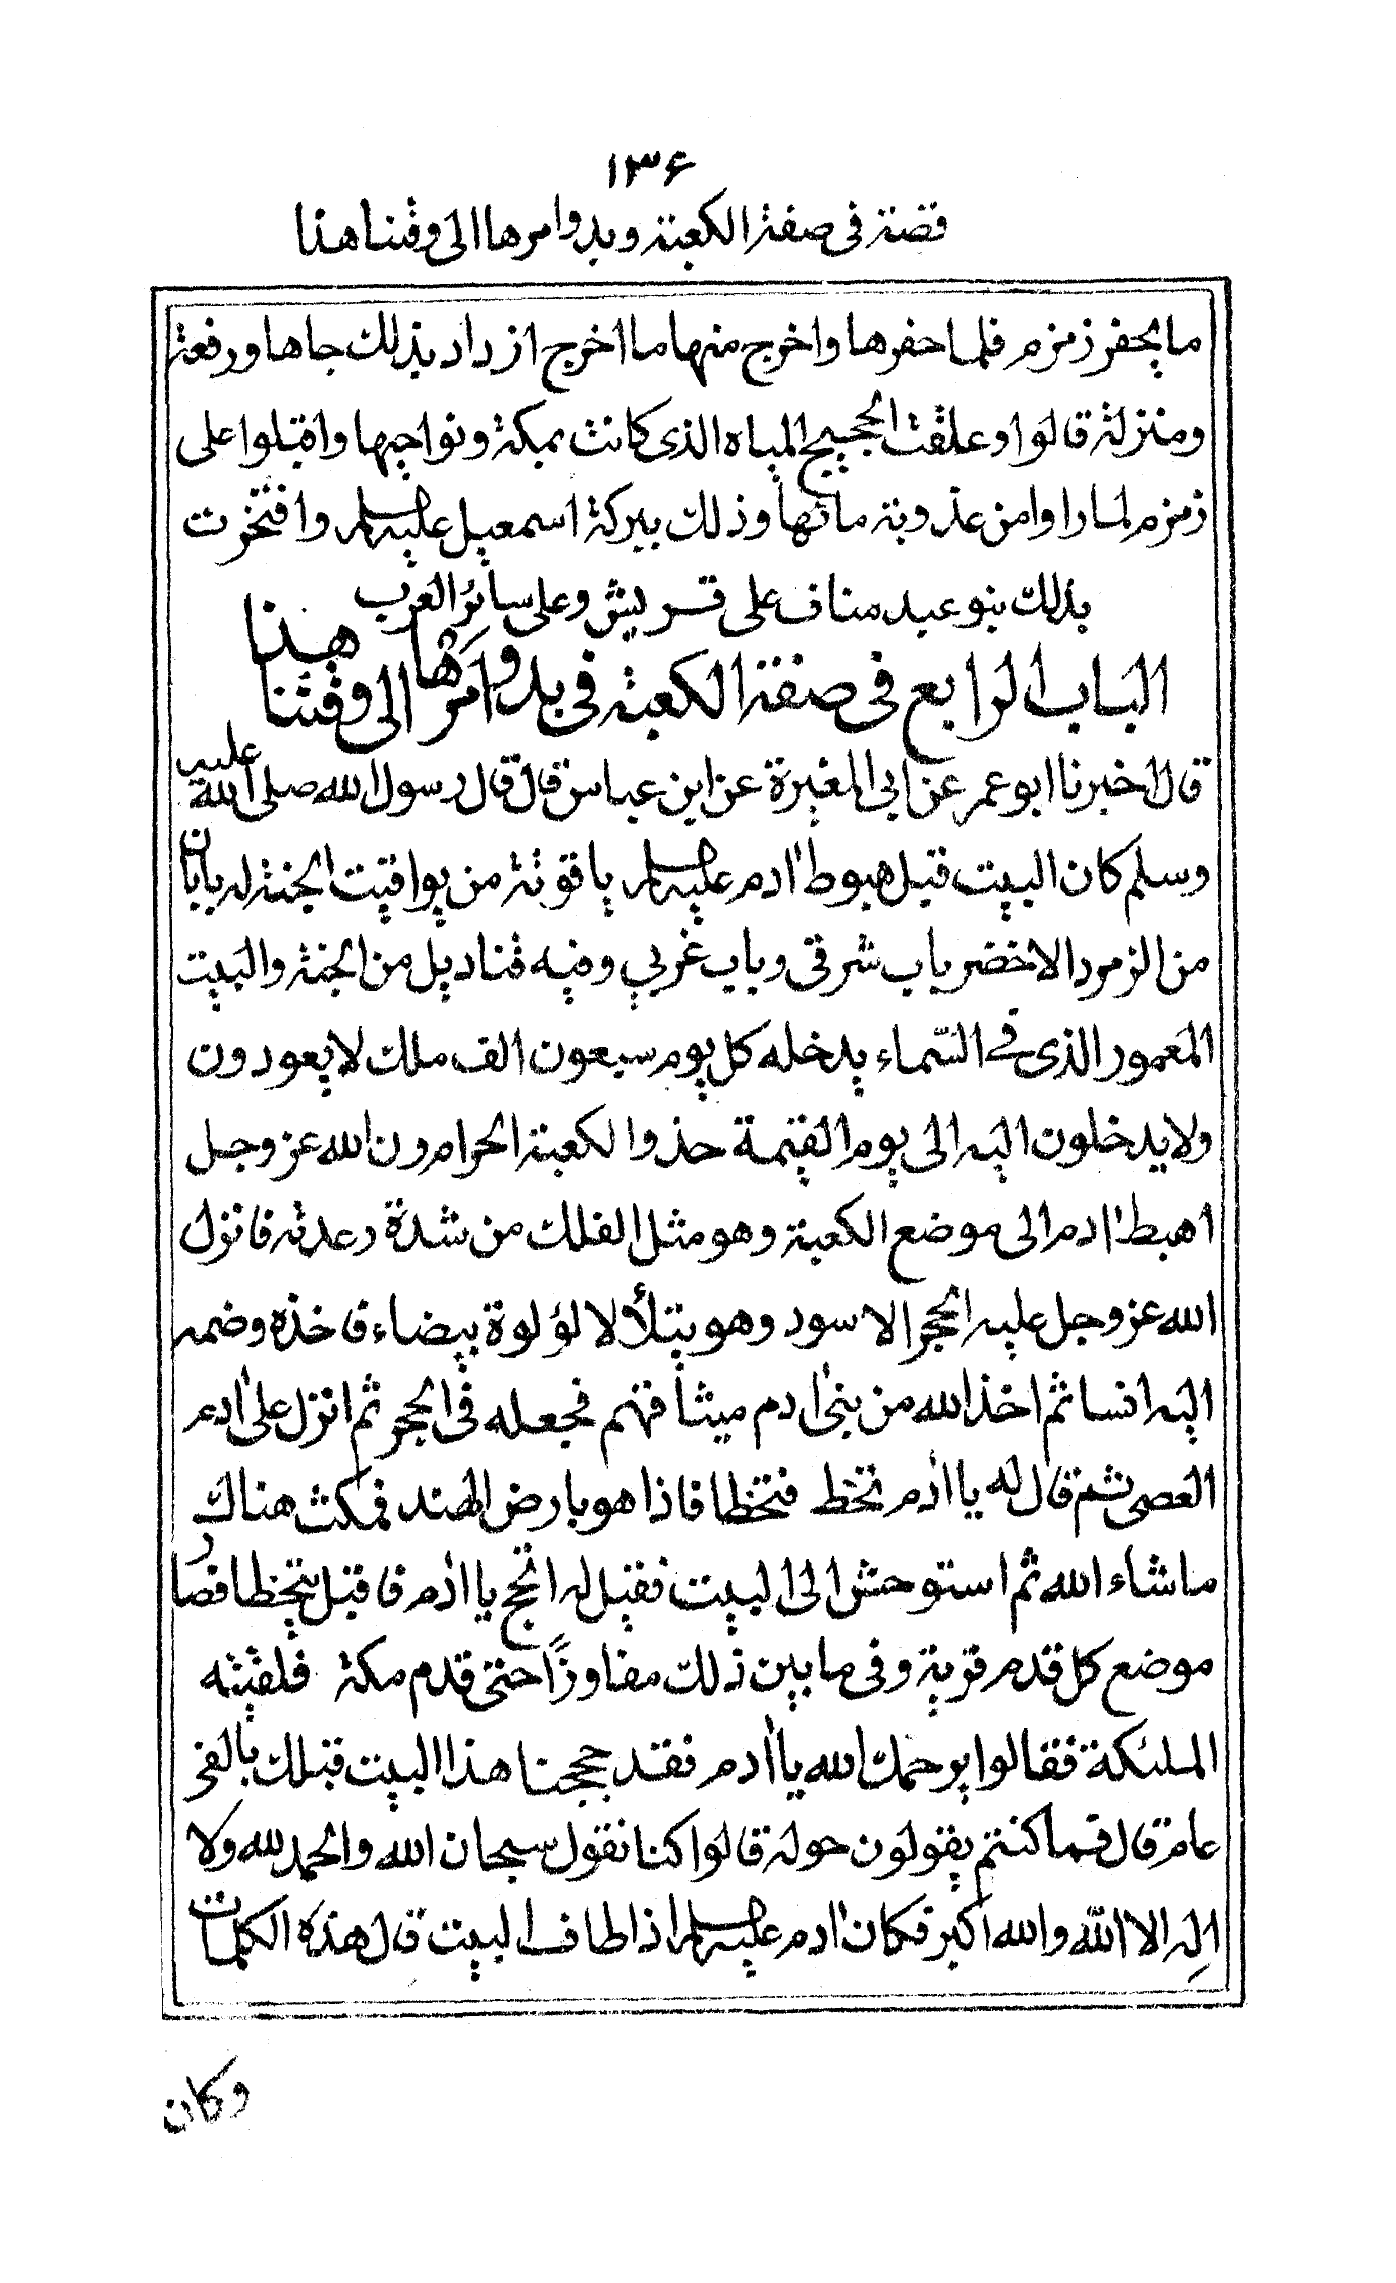 ١٣۶
قصة فى صفة الكعبة وبدوامرها الى وقتنا هذا
ما يحفر زمزم فلما حفرها واخرج منها ما اخرج ازداد بذلك جاها ورفعة
ومنزلة قالوا وعلقت الحجيج المياه الذى كانت بمكة ونواحيها واقبلوا على
زمزم لما راوا من عذوبة مائها وذلك ببركة اسمعيل عليه السلم وافتخرت
بذلك بنو عبد مناف على قريش وعلى سائر العرب
الباب الرابع فى صفة الكعبة فى بدو امرها الى وقتنا هذا
قال اخبرنا ابو عمر عن ابى المغيرة عن ابن عباس قال قال رسول الله صلى الله عليه
وسلم كان البيت قبل هبوط ادم عليه السلم ياقوتة من يواقيت الجنة له بابان
من الزمرد الاخضر باب شرقى وباب غربي وفيه قناديل من الجنة والبيت
المعمور الذى فى السّماء يدخله كل يوم سبعون الف ملك لا يعودون
ولا يدخلون اليه الى يوم القيمة حذو الكعبة الحرام ون الله عز وجل
اهبط ادم الى موضع الكعبة وهو مثل الفلك من شدة رعدته فانزل
الله عز وجل عليه الحجر الاسود وهو يتلألا لؤلوة بيضاء فاخذه وضمه
اليه انسا ثم اخذ الله من بنى ادم ميثا قهم فجعله فى الحجر ثم انزل على ادم
العصى ثم قال له يا ادم تخط فتخطا فاذا هو بارض الهند فمكث هناك
ما شاء الله ثم استوحش الى البيت فقيل له الحج يا ادم فاقبل يتخطا فصار
موضع كل قدم قرية وفى ما بين ذلك مفاوزًا حتى قدم مكة فلقيته
الملئكة فقالوا يرحمك الله يا ادم فقد حججنا هذا البيت قبلك بالفى
عام قال فما كنتم يقولون حوله قالوا كنا نقول سبحان الله والحمد لله ولا
اله الا الله والله اكبر فكان ادم عليه السلم اذا طاف البيت قال هذه الكلمات
وكان